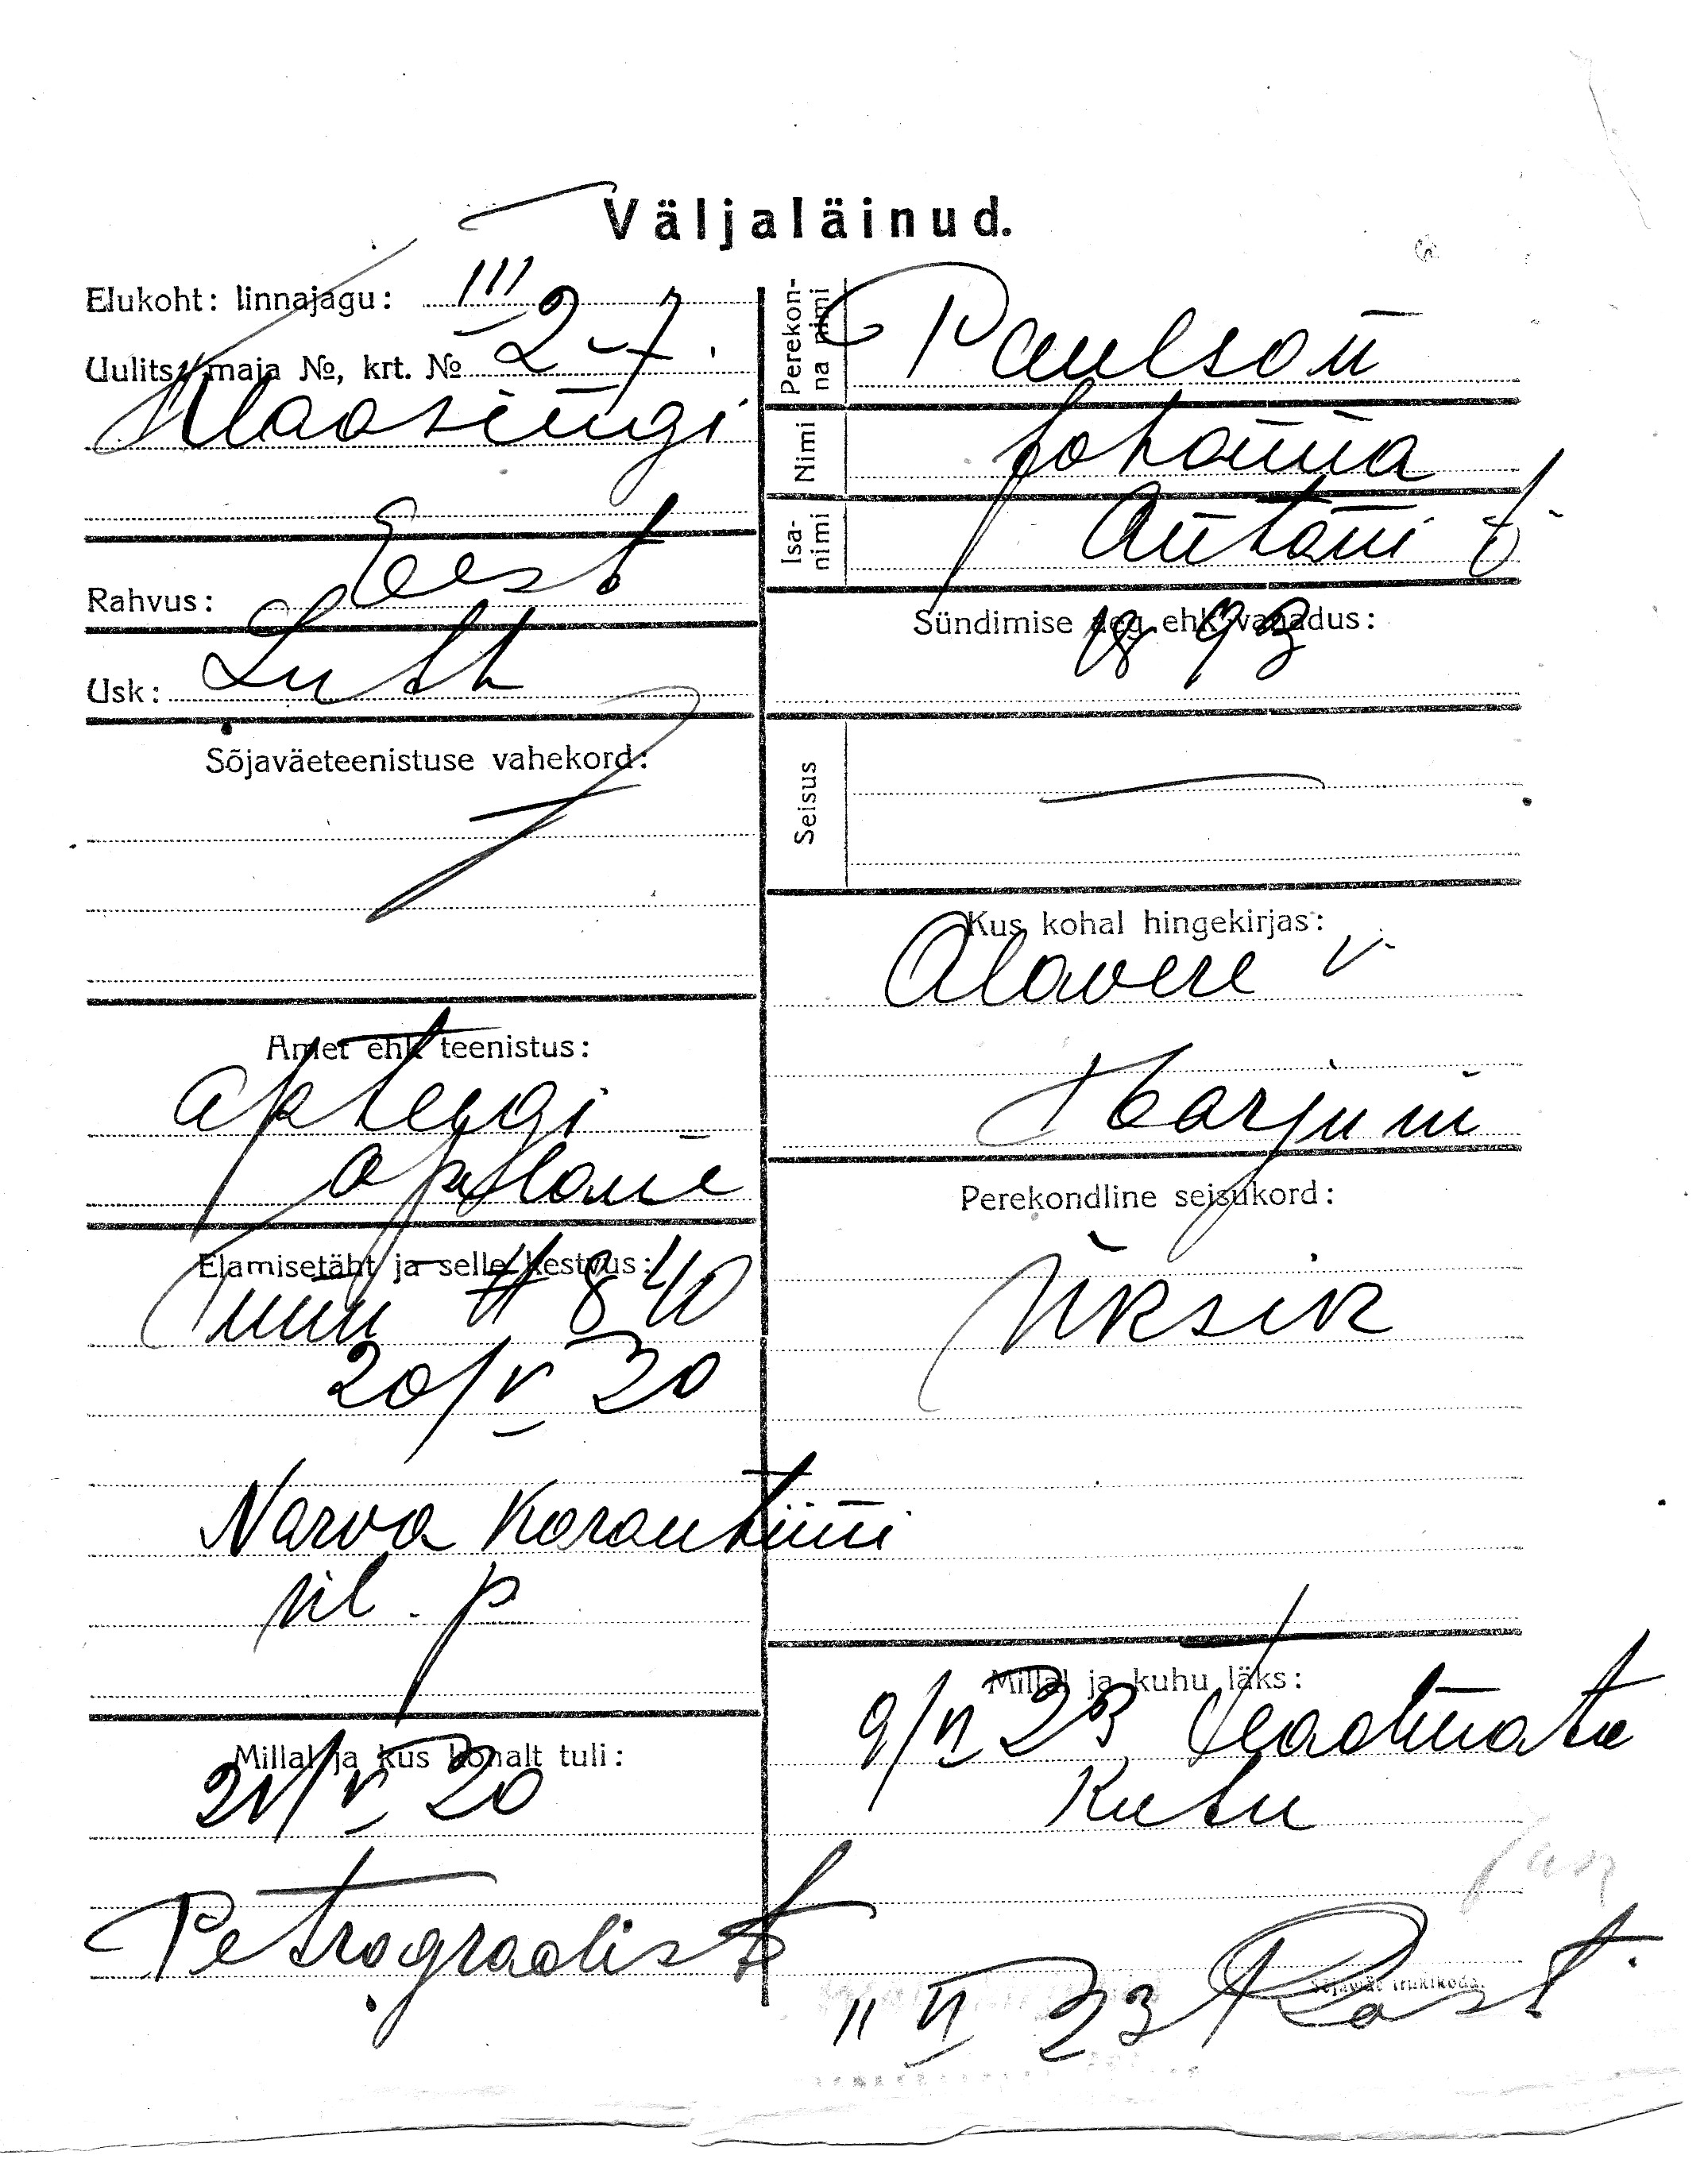 Väljaläinud.
Elukoht: linnajagu: III
Uulits, maja №, krt. № 2-7.
Maasingi
Rahvus: Eest
Usk: Luth
Sõjaväeteenistuse vahekord:
Amet ehk teenistus:
Aptegi
õpilane
Elamisetäht ja selle kestvus:
№ 840
20/V 20
Narva Karantiini
Millal ja kus kohalt tuli:
21/V 20
Petrogradist
Perekonna nimi Paulson
Nimi Johanna
Isanimi Antoni t.
Sündimise aeg ehk vanadus:
1893
Seisus —
Kus kohal hingekirjas:
Alavere v.
Harjum
Perekondline seisukord:
Üksik
Millal ja kuhu läks:
9/VI 23 teadmata
kuhu
Sõjaväe trükikoda.
11 VI 23